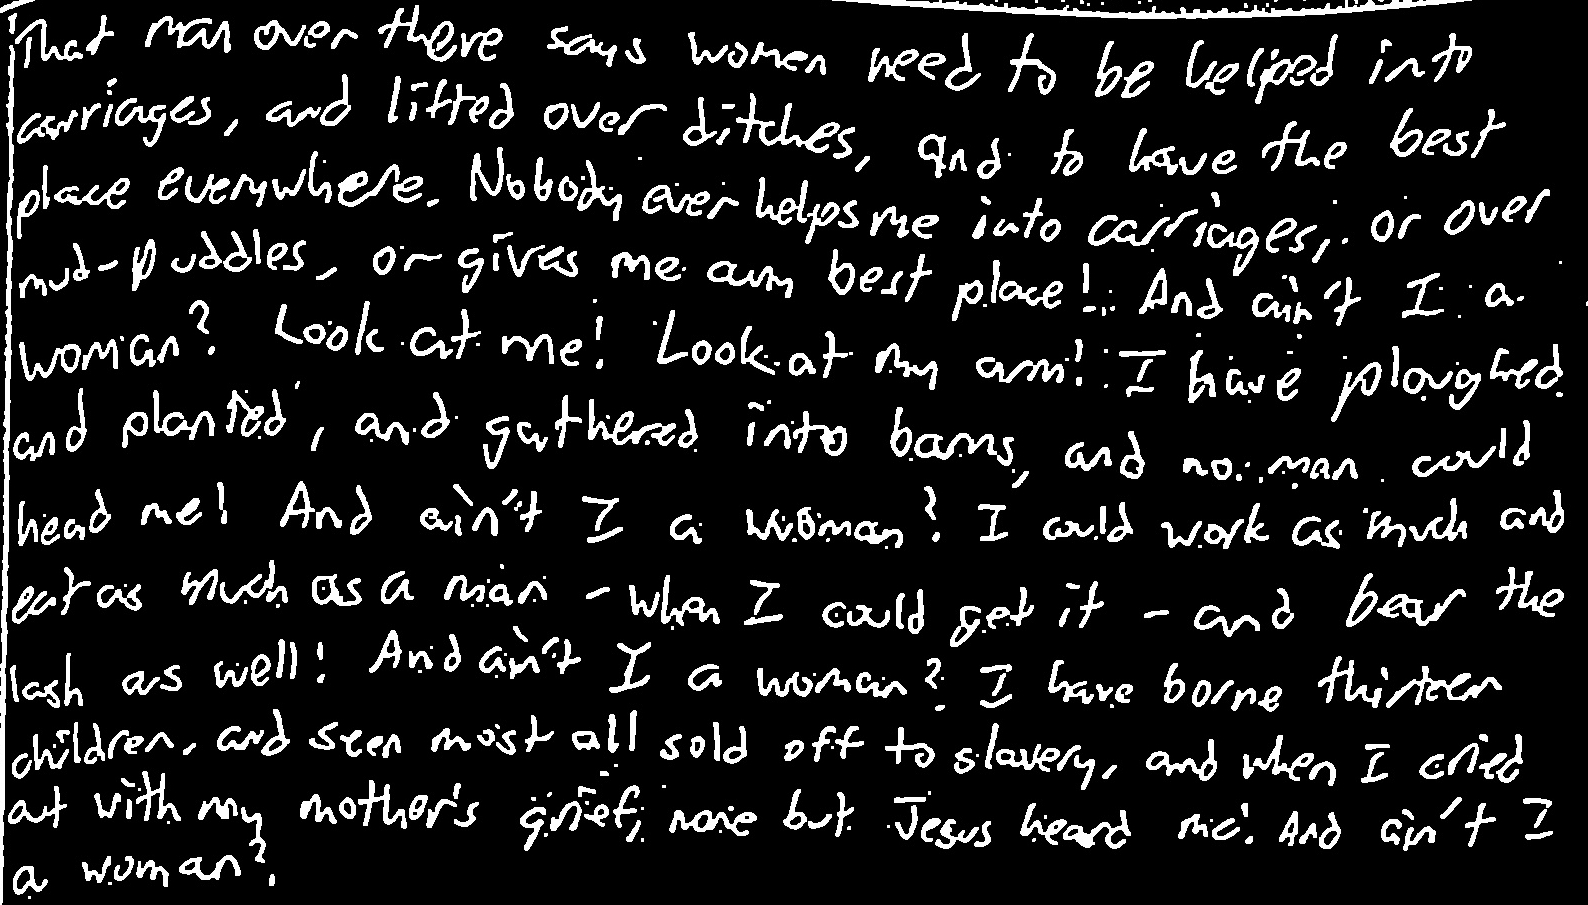 That man over there says women need to be helped into
carriages, and lifted over ditches, and to have the best
place everywhere. Nobody ever helps me into carriages, or over
mud-puddles, or gives me any best place! And ain't I a
woman? Look at me! Look at my arm! I have ploughed
and planted, and gathered into barns, and no man could
head me! And ain't I a woman? I could work as much and
eat as much as a man - when I could get it - and bear the
lash as well! And ain't I a woman? I have borne thirteen
children, and seen most all sold off to slavery, and when I cried
out with my mother's grief, none but Jesus heard me! And ain't I
a woman?